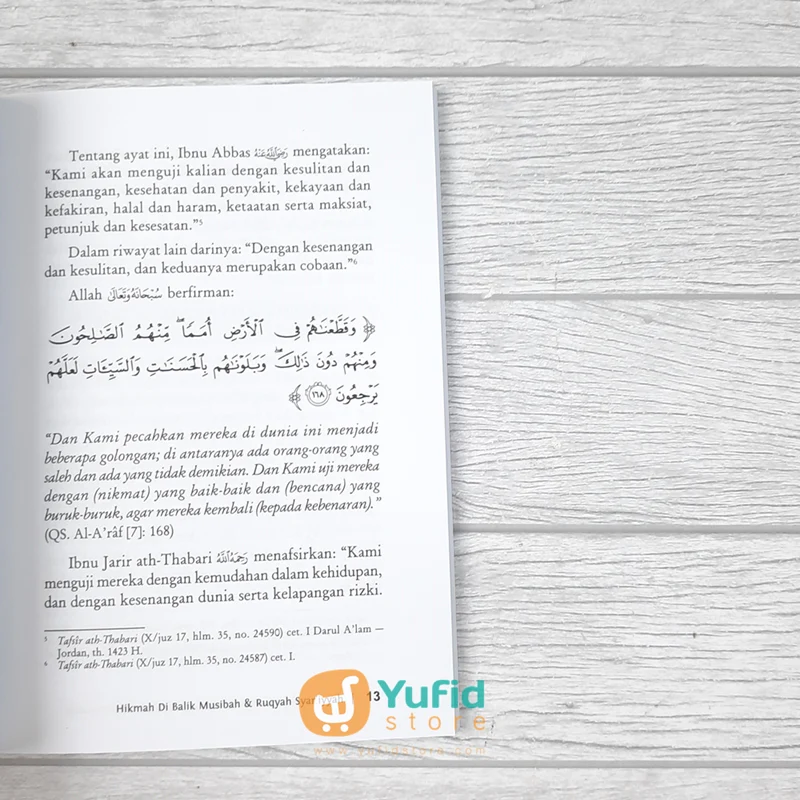 Tentang ayat ini, Ibnu Abbas رضي الله عنه mengatakan:
“Kami akan menguji kalian dengan kesulitan dan
kesenangan, kesehatan dan penyakit, kekayaan dan
kefakiran, halal dan haram, ketaatan serta maksiat,
petunjuk dan kesesatan.”⁵
Dalam riwayat lain darinya: “Dengan kesenangan
dan kesulitan, dan keduanya merupakan cobaan.”⁶
Allah سُبْحَانَهُ وَتَعَالَى berfirman:
﴿ وَقَطَّعْنَاهُمْ فِي الْأَرْضِ أُمَمًا ۖ مِّنْهُمُ الصَّالِحُونَ
وَمِنْهُمْ دُونَ ذَٰلِكَ ۖ وَبَلَوْنَاهُم بِالْحَسَنَاتِ وَالسَّيِّئَاتِ لَعَلَّهُمْ
يَرْجِعُونَ ١٦٨ ﴾
“Dan Kami pecahkan mereka di dunia ini menjadi
beberapa golongan; di antaranya ada orang-orang yang
saleh dan ada yang tidak demikian. Dan Kami uji mereka
dengan (nikmat) yang baik-baik dan (bencana) yang
buruk-buruk, agar mereka kembali (kepada kebenaran).”
(QS. Al-A’râf [7]: 168)
Ibnu Jarir ath-Thabari رحمه الله menafsirkan: “Kami
menguji mereka dengan kemudahan dalam kehidupan,
dan dengan kesenangan dunia serta kelapangan rizki.
⁵ Tafsîr ath-Thabari (X/juz 17, hlm. 35, no. 24590) cet. I Darul A’lam —
Jordan, th. 1423 H.
⁶ Tafsîr ath-Thabari (X/juz 17, hlm. 35, no. 24587) cet. I.
Hikmah Di Balik Musibah & Ruqyah Syar’iyyah 13
Yufid
store
www.yufidstore.com